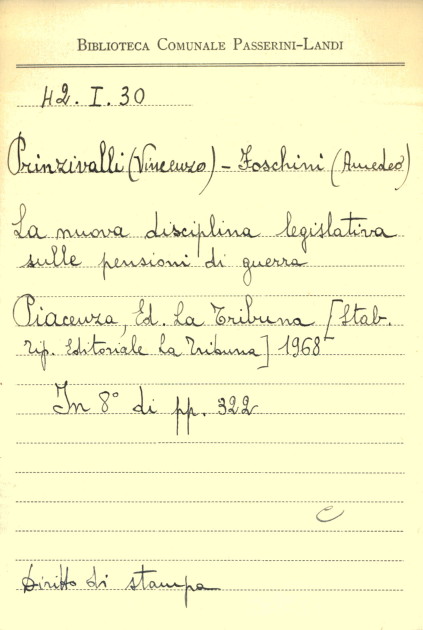 BIBLIOTECA COMUNALE PASSERINI-LANDI
42. I. 30
Prinzivalli (Vincenzo) - Foschini (Amedeo)
La nuova disciplina legislativa
sulle pensioni di guerra
Piacenza, Ed. La Tribuna [Stab.
Tip. Editoriale La Tribuna] 1968
In 8° di pp. 322
e
Diritto di stampa